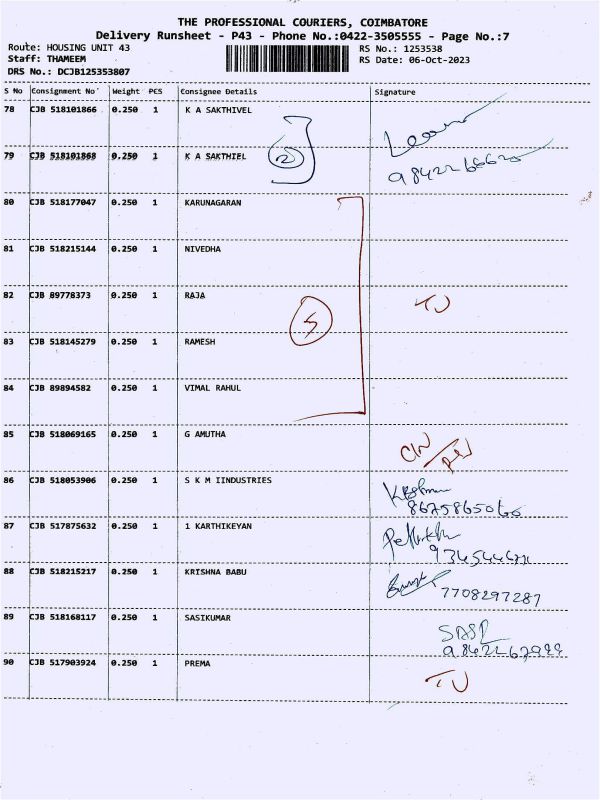 THE PROFESSIONAL COURIERS, COIMBATORE
Delivery Runsheet - P43 - Phone No.:0422-3505555 - Page No.:7
Route: HOUSING UNIT 43 RS No.: 1253538
Staff: THAMEEM RS Date: 06-Oct-2023
DRS No.: DCJB125353807
S No Consignment No Weight PCS Consignee Details Signature
78 CJB 518101866 0.250 1 K A SAKTHIVEL
79 CJB 518101868 0.250 1 K A SAKTHIEL
2
80 CJB 518177047 0.250 1 KARUNAGARAN
81 CJB 518215144 0.250 1 NIVEDHA
82 CJB 89778373 0.250 1 RAJA
83 CJB 518145279 0.250 1 RAMESH
5
84 CJB 89894582 0.250 1 VIMAL RAHUL
85 CJB 518069165 0.250 1 G AMUTHA
86 CJB 518053906 0.250 1 S K M IINDUSTRIES
8675865066
87 CJB 517875632 0.250 1 1 KARTHIKEYAN
88 CJB 518215217 0.250 1 KRISHNA BABU
7708297287
89 CJB 518168117 0.250 1 SASIKUMAR
90 CJB 517903924 0.250 1 PREMA